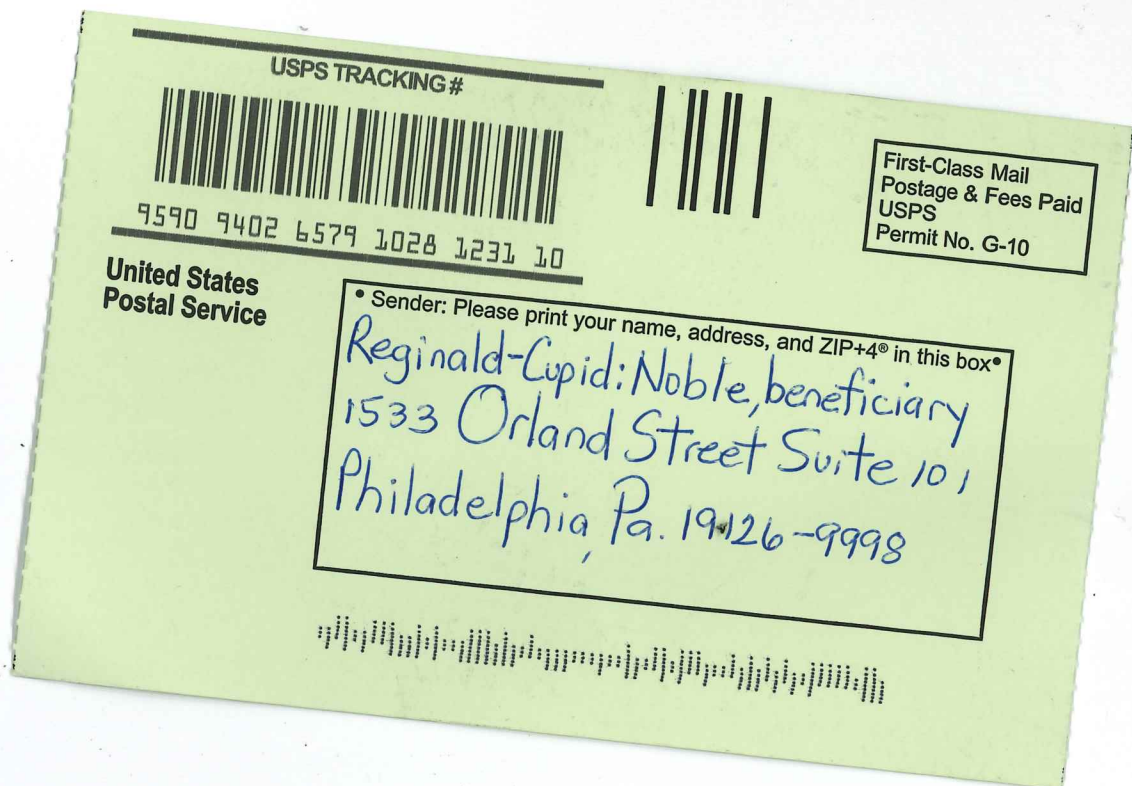 USPS TRACKING#
9590 9402 6579 1028 1231 10
First-Class Mail
Postage & Fees Paid
USPS
Permit No. G-10
United States
Postal Service
• Sender: Please print your name, address, and ZIP+4® in this box•
Reginald-Cupid: Noble, beneficiary
1533 Orland Street Suite 101
Philadelphia, Pa. 19126-9998